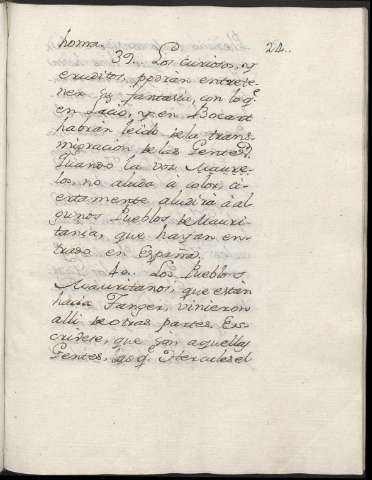 homa. 22.
39. Los Curiosos, y
eruditos, podrán entrete-
ner su fantasía, con lo q.e
en Lacio, y en Bocart
habrán leido de la trans-
migracion de las Gentes.
Quando la voz Maure-
los, no aluda à color, ci-
ertamente aludirà à al-
gunos Pueblos de Mauri-
tania, que hayan en-
trado en España.
40. Los Pueblos
Mauritanos, que están
hacia Tanger, vinieron
alli de otras partes. Es-
crivese, que son aquellas
Gentes, las q. Hercules el